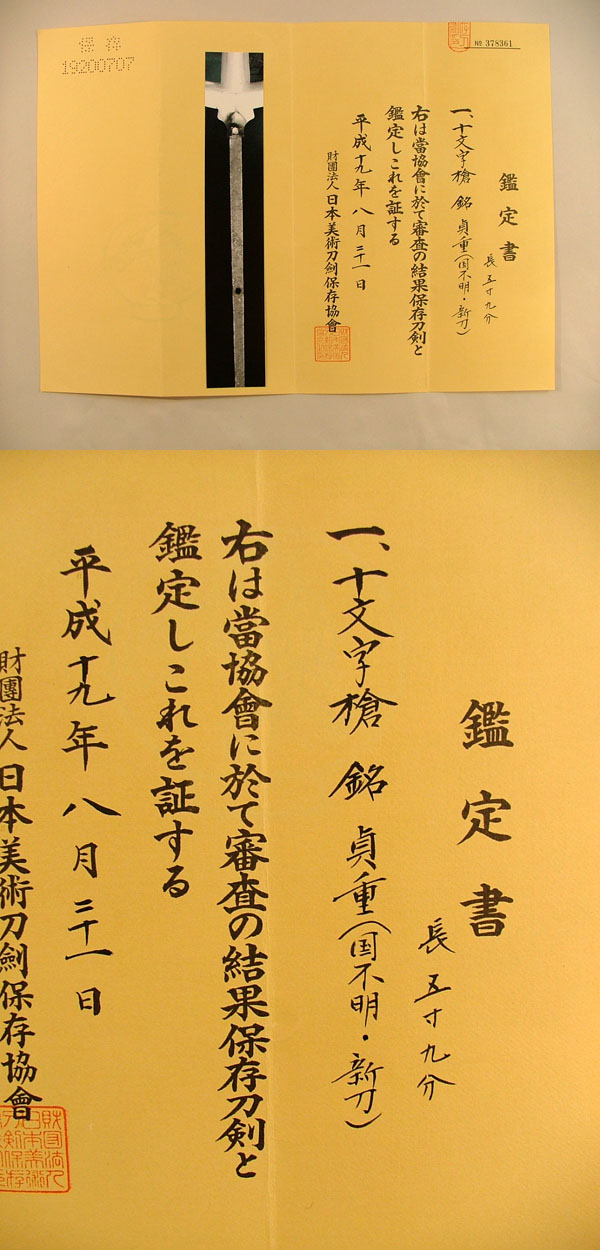 保存
19200707
№ 378361
鑑定書
長 五寸九分
一、十文字槍 銘 貞重(国不明・新刀)
右は當協會に於て審査の結果保存刀剣と
鑑定しこれを証する
平成十九年八月二十一日
財團法人日本美術刀劍保存協會
鑑定書
長 五寸九分
一、十文字槍 銘 貞重(国不明・新刀)
右は當協會に於て審査の結果保存刀剣と
鑑定しこれを証する
平成十九年八月二十一日
財團法人日本美術刀劍保存協會